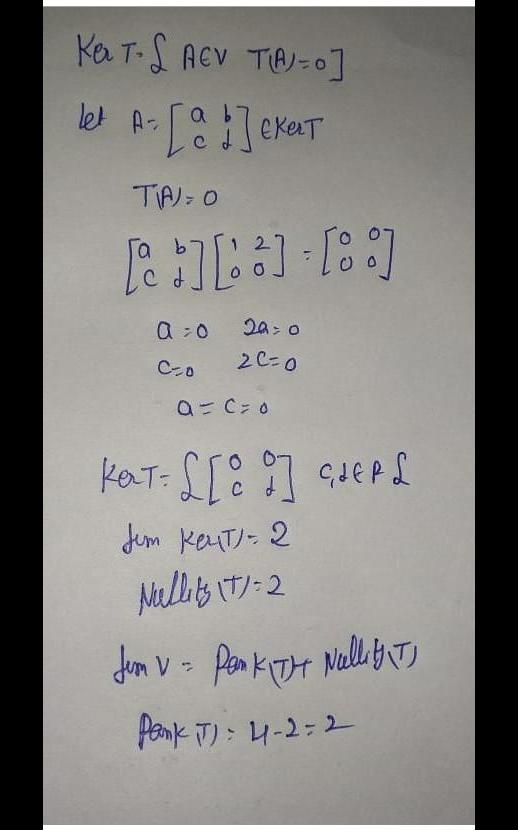 Ker T = { A∈V T(A)=0 }
let A = [a b; c d] ∈ Ker T
T(A) = 0
[a b; c d] [1 2; 0 0] = [0 0; 0 0]
a = 0 2a = 0
c = 0 2c = 0
a = c = 0
Ker T = { [0 0; c d] c,d∈R }
dim Ker(T) = 2
Nullity (T) = 2
dim V = Rank(T) + Nullity(T)
Rank(T) = 4-2 = 2